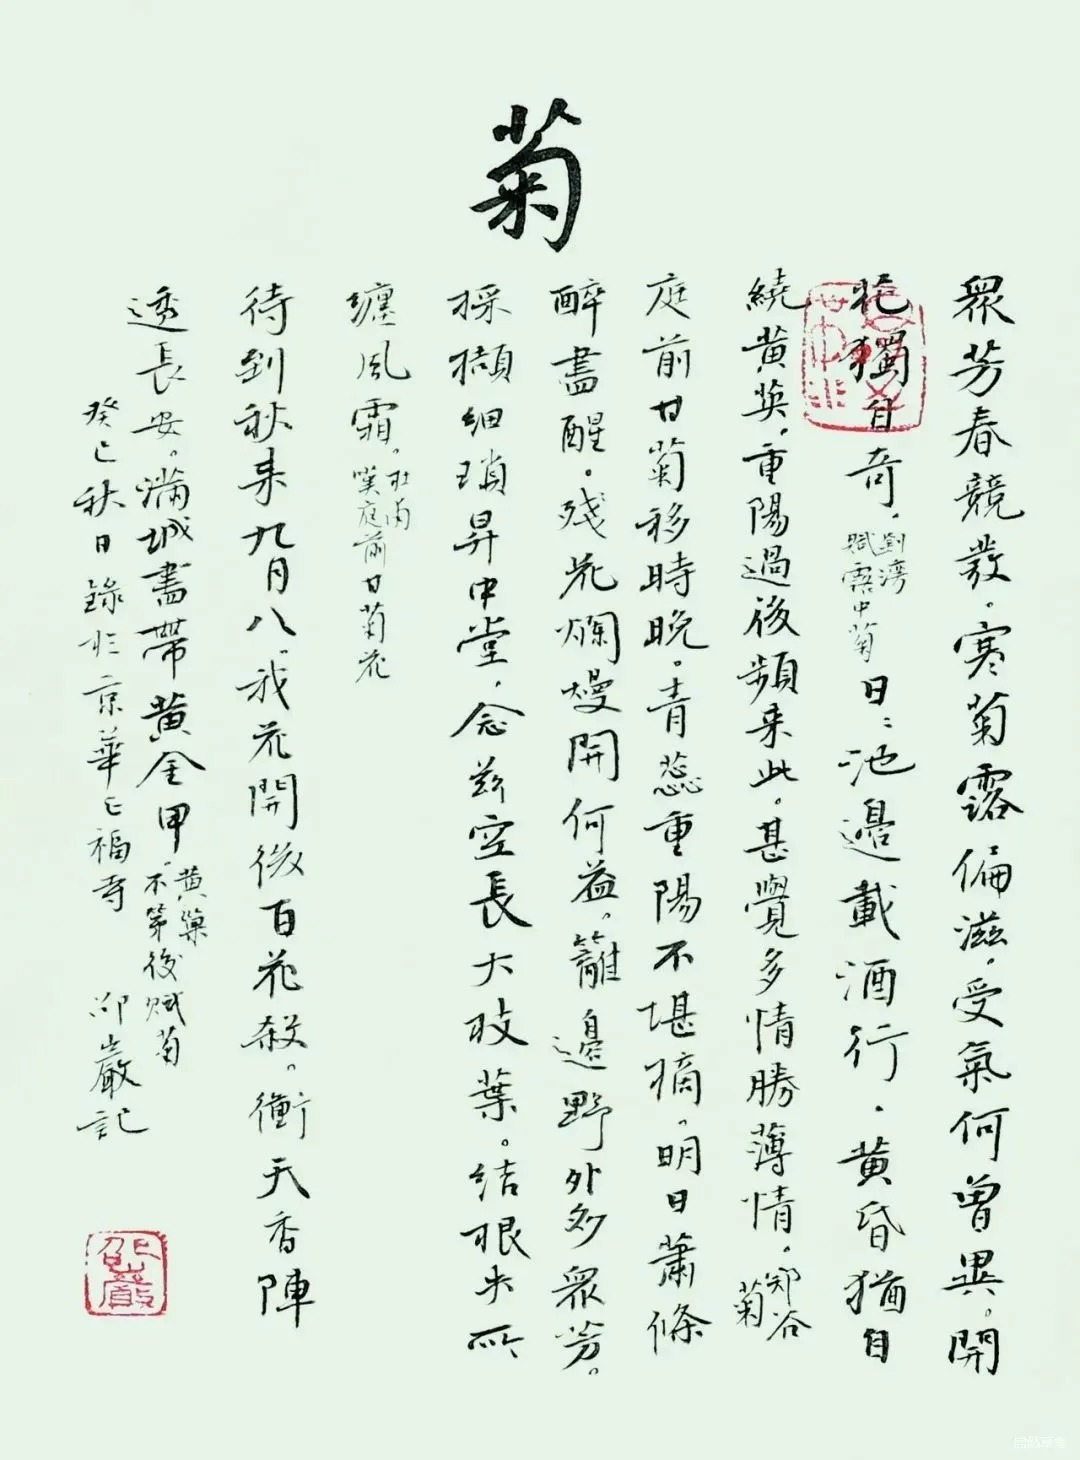 菊
眾芳春競發。寒菊露偏滋。受氣何曾異。開
花獨自奇。劉灣
賦露中菊
日〻池邊載酒行。黃昏猶自
繞黃英。重陽過後頻來此。甚覺多情勝薄情。鄭谷
菊
庭前甘菊移時晚。青蕊重陽不堪摘。明日蕭條
醉盡醒。殘花爛熳開何益。籬邊野外多眾芳。
採擷細瑣昇中堂。念茲空長大枝葉。結根失所
纏風霜。杜甫
嘆庭前甘菊花
待到秋來九月八。我花開後百花殺。衝天香陣
透長安。滿城盡帶黃金甲。黃巢
不第後賦菊
癸巳秋日錄於京華七福寺 邵巖記
邵巖